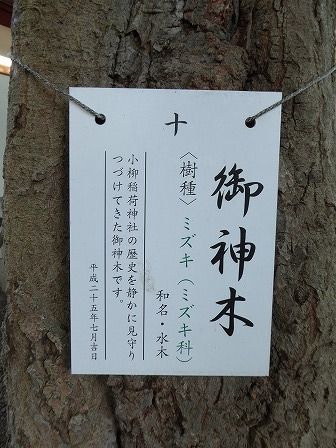 十
御神木
〈樹種〉ミズキ(ミズキ科)
和名・水木
小柳稲荷神社の歴史を静かに見守り
つづけてきた御神木です。
平成二十五年七月吉日